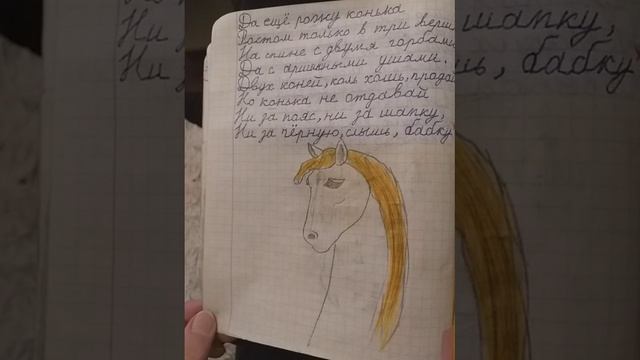 Да ещё рожу конька
Ростом только в три верш
На спине с двумя горбами
Да с аршинными ушами.
Двух коней, коль хошь, продай
Но конька не отдавай
Ни за пояс, ни за шапку,
Ни за чёрную, слышь, бабку